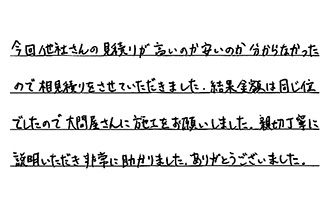 今回他社さんの見積りが高いのか安いのか分からなかった
ので相見積りをさせていただきました。結果金額は同じ位
でしたので大問屋さんに施工をお願いしました。親切丁寧に
説明いただき非常に助かりました。ありがとうございました。